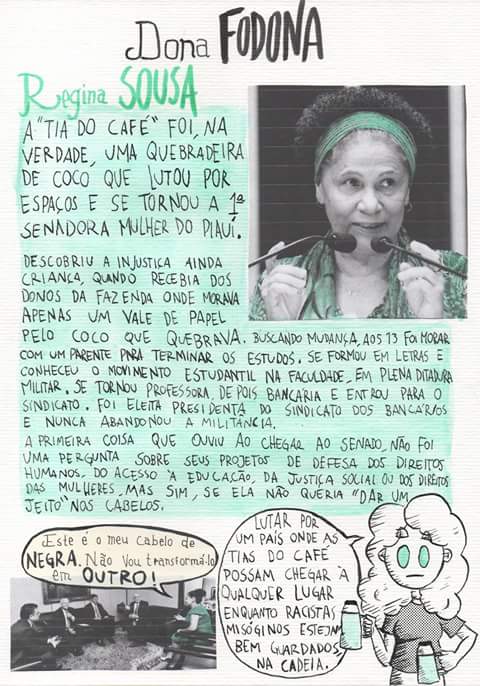 Dona FODONA
Regina SOUSA
A "TIA DO CAFÉ" FOI, NA
VERDADE, UMA QUEBRADEIRA
DE COCO QUE LUTOU POR
ESPAÇOS E SE TORNOU A 1ª
SENADORA MULHER DO PIAUÍ.
DESCOBRIU A INJUSTIÇA AINDA
CRIANÇA, QUANDO RECEBIA DOS
DONOS DA FAZENDA ONDE MORAVA
APENAS UM VALE DE PAPEL
PELO COCO QUE QUEBRAVA. BUSCANDO MUDANÇA, AOS 13 FOI MORAR
COM UM PARENTE PARA TERMINAR OS ESTUDOS. SE FORMOU EM LETRAS E
CONHECEU O MOVIMENTO ESTUDANTIL NA FACULDADE, EM PLENA DITADURA
MILITAR. SE TORNOU PROFESSORA, DEPOIS BANCÁRIA E ENTROU PARA O
SINDICATO. FOI ELEITA PRESIDENTA DO SINDICATO DOS BANCÁRIOS
E NUNCA ABANDONOU A MILITÂNCIA.
A PRIMEIRA COISA QUE OUVIU AO CHEGAR AO SENADO, NÃO FOI
UMA PERGUNTA SOBRE SEUS PROJETOS DE DEFESA DOS DIREITOS
HUMANOS, DO ACESSO À EDUCAÇÃO, DA JUSTIÇA SOCIAL OU DOS DIREITOS
DAS MULHERES, MAS SIM, SE ELA NÃO QUERIA "DAR UM
JEITO" NOS CABELOS.
Este é o meu cabelo de
NEGRA. Não vou transformá-lo
em OUTRO!
LUTAR POR
UM PAÍS ONDE AS
TIAS DO CAFÉ
POSSAM CHEGAR À
QUALQUER LUGAR
ENQUANTO RACISTAS
MISÓGINOS ESTEJAM
BEM GUARDADOS
NA CADEIA.